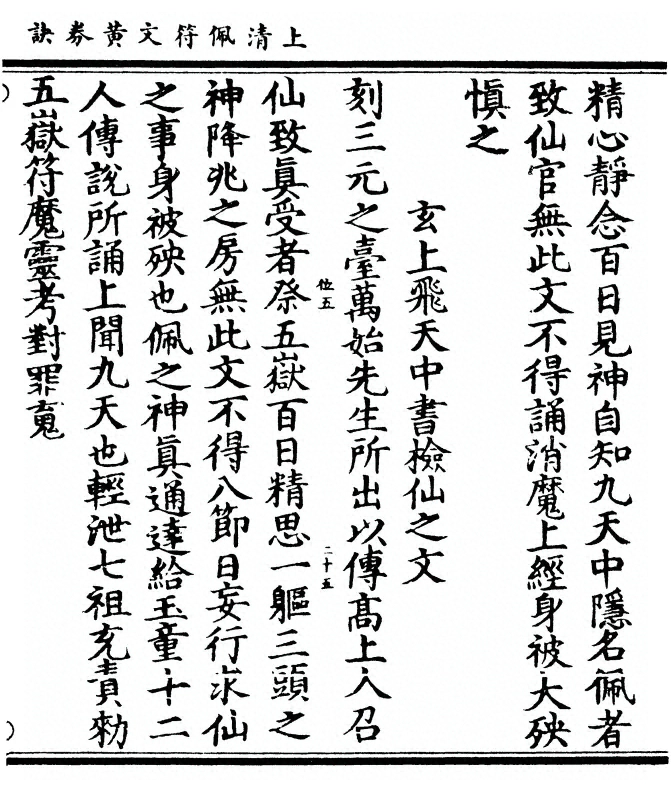 上清佩符文黄券訣
精心靜念百日見神自知九天中隱名佩者
致仙官無此文不得誦消魔上經身被大殃
慎之
玄上飛天中書檢仙之文
刻三元之臺萬始先生所出以傳高上人召
仙致真受者祭五嶽百日精思一軀三頭之
位五
二十五
神降兆之房無此文不得八節日妄行求仙
之事身被殃也佩之神真通達給玉童十二
人傳說所誦上聞九天也輕泄七祖充責勑
五嶽符魔靈考對罪䰟